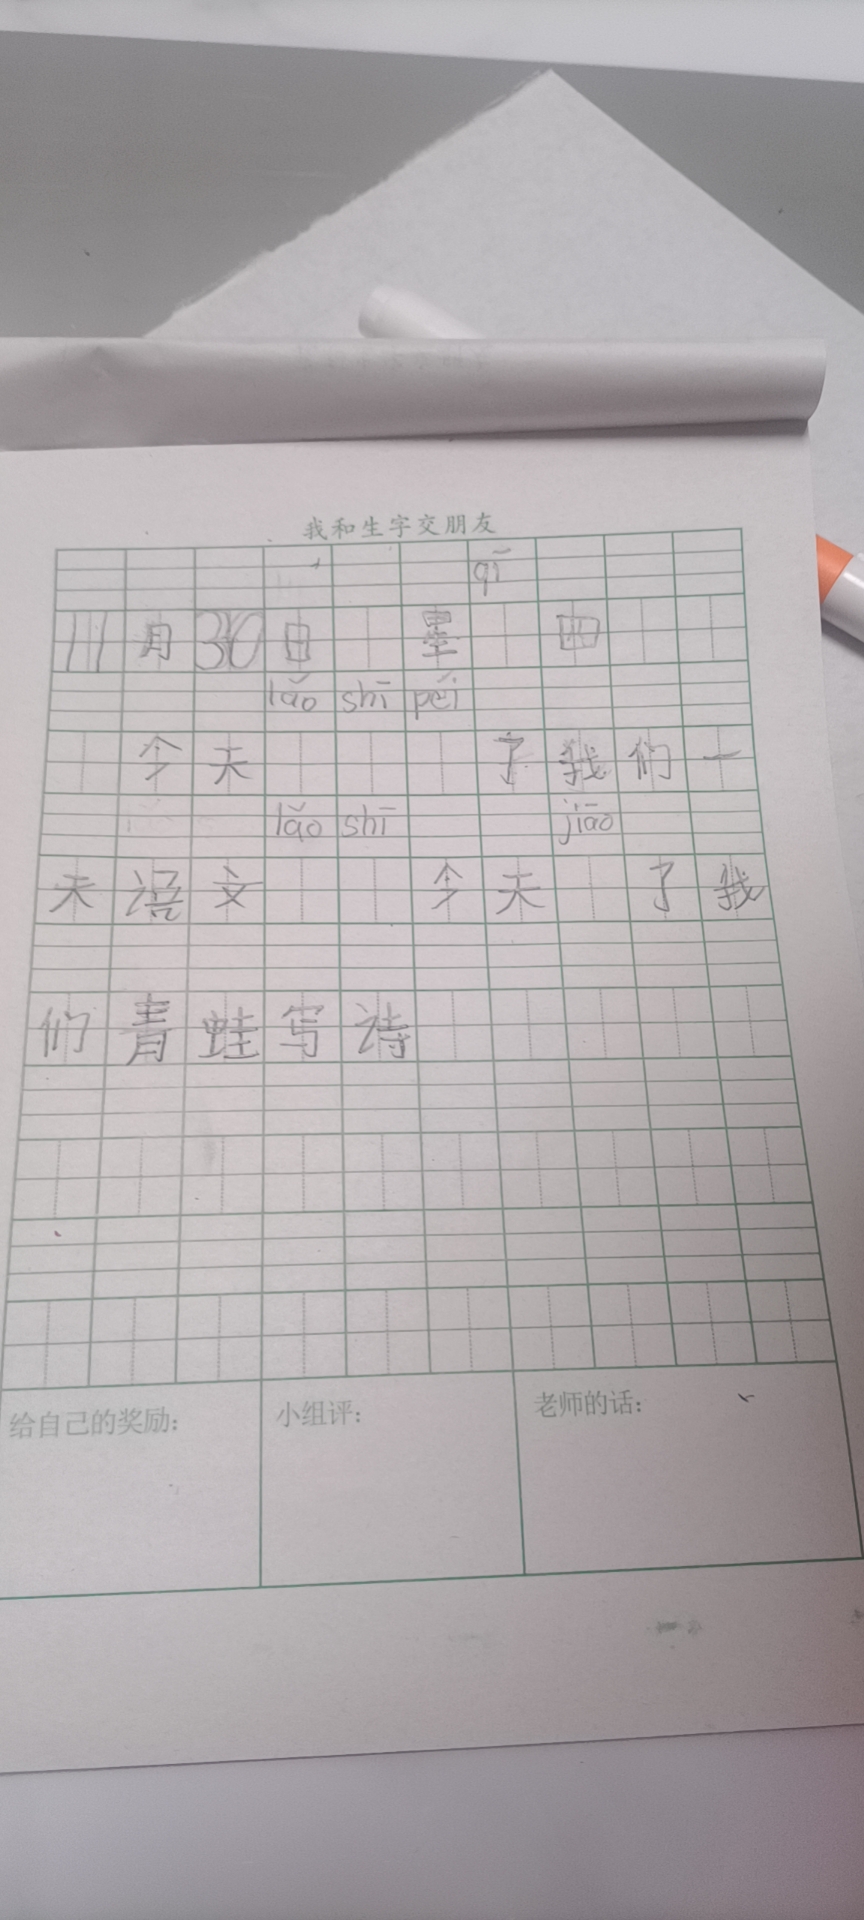 我和生字交朋友
qī
11月30日 星 四
lǎo shī péi
今天 了我们一
lǎo shī jiāo
天语文 今天 了我
们青蛙写诗
给自己的奖励： 小组评： 老师的话：